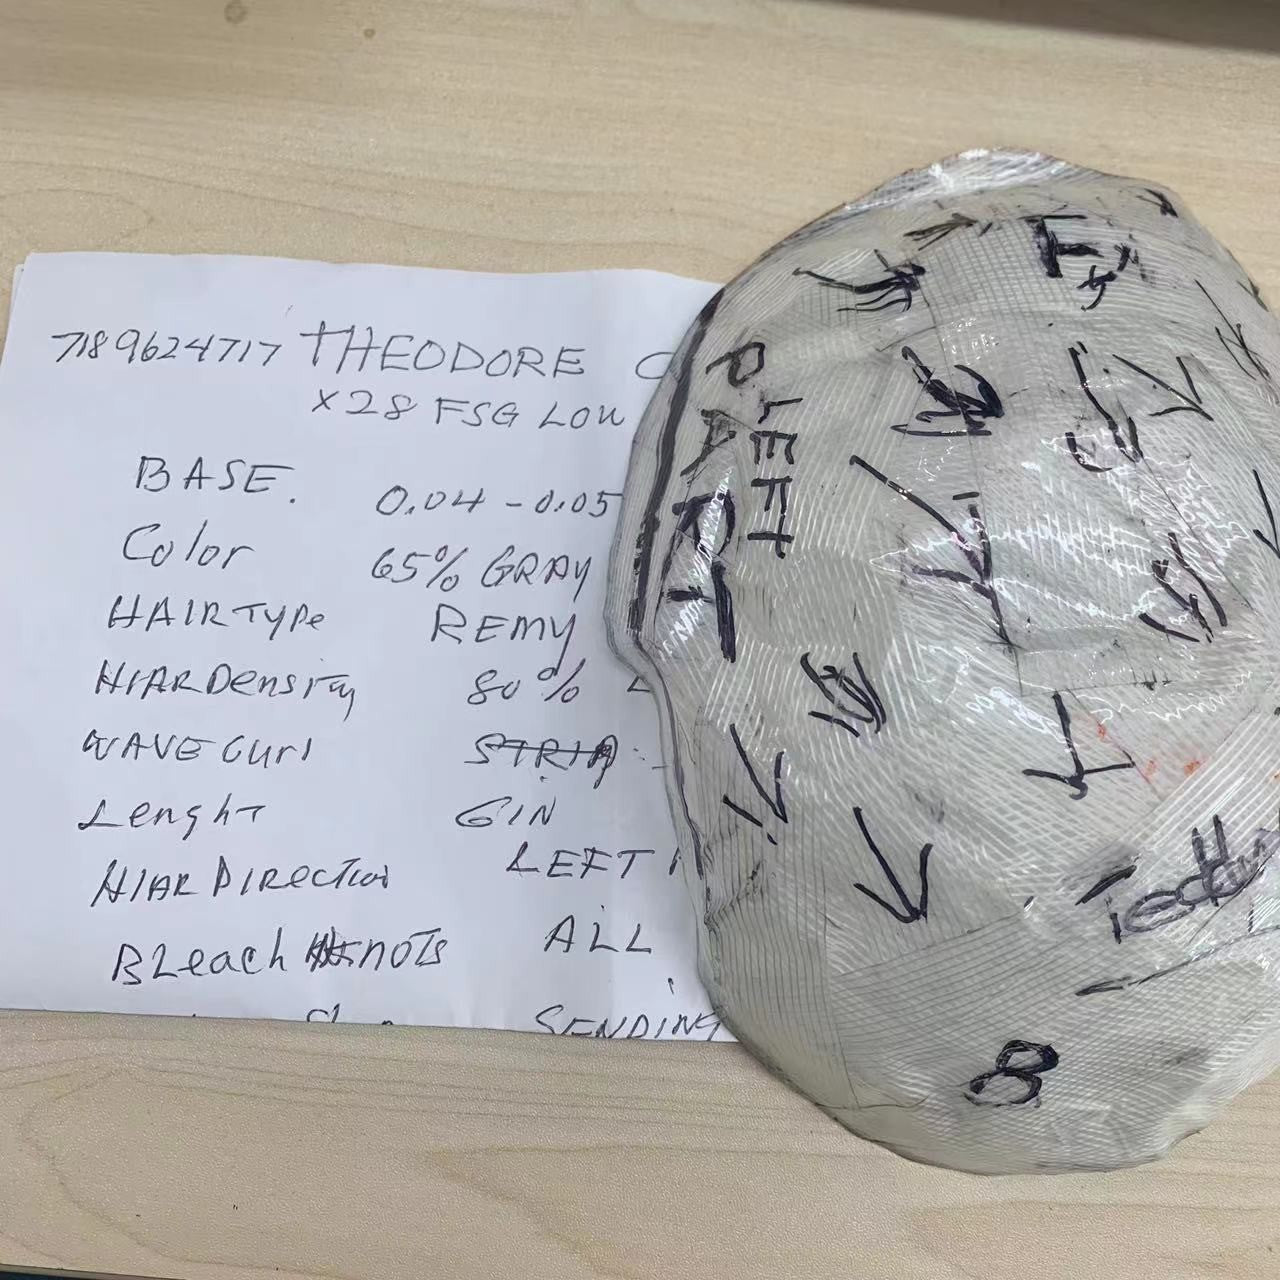 7189624717 THEODORE C
X28 FSG LOW
BASE. 0.04 - 0.05
Color 65% GRAY
HAIR TYPe REMY
HIAR Density 80%
WAVE CURl STRIA
Lenght 6IN
HIAR DIRection LEFT
BLeach KnoTs ALL
SENDING
LEFT
PART
Teddy
B